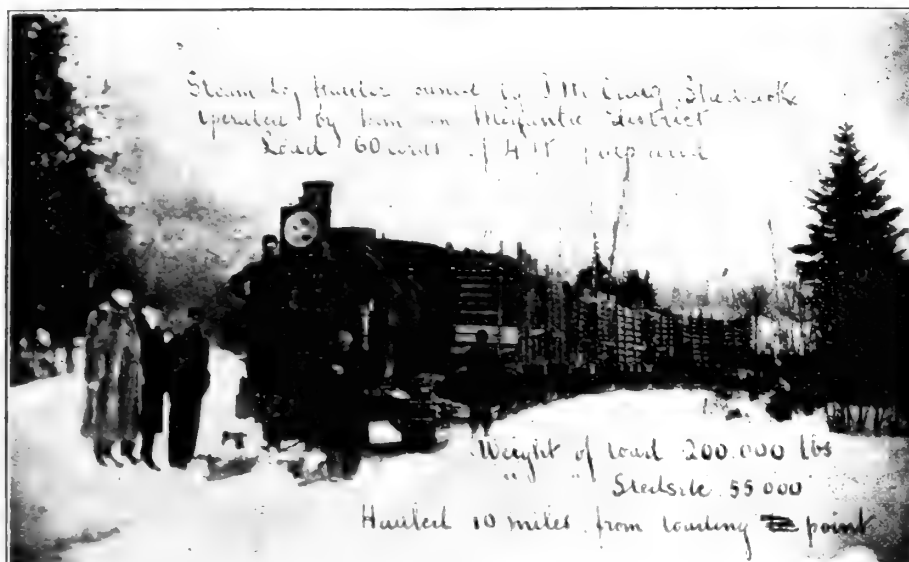 Steam Log Hauler owned by
operated by him in Megantic District
Load 60 cords of 4 ft pulpwood
Weight of load 200.000 lbs
" " 55 000
Hauled 10 miles from loading point